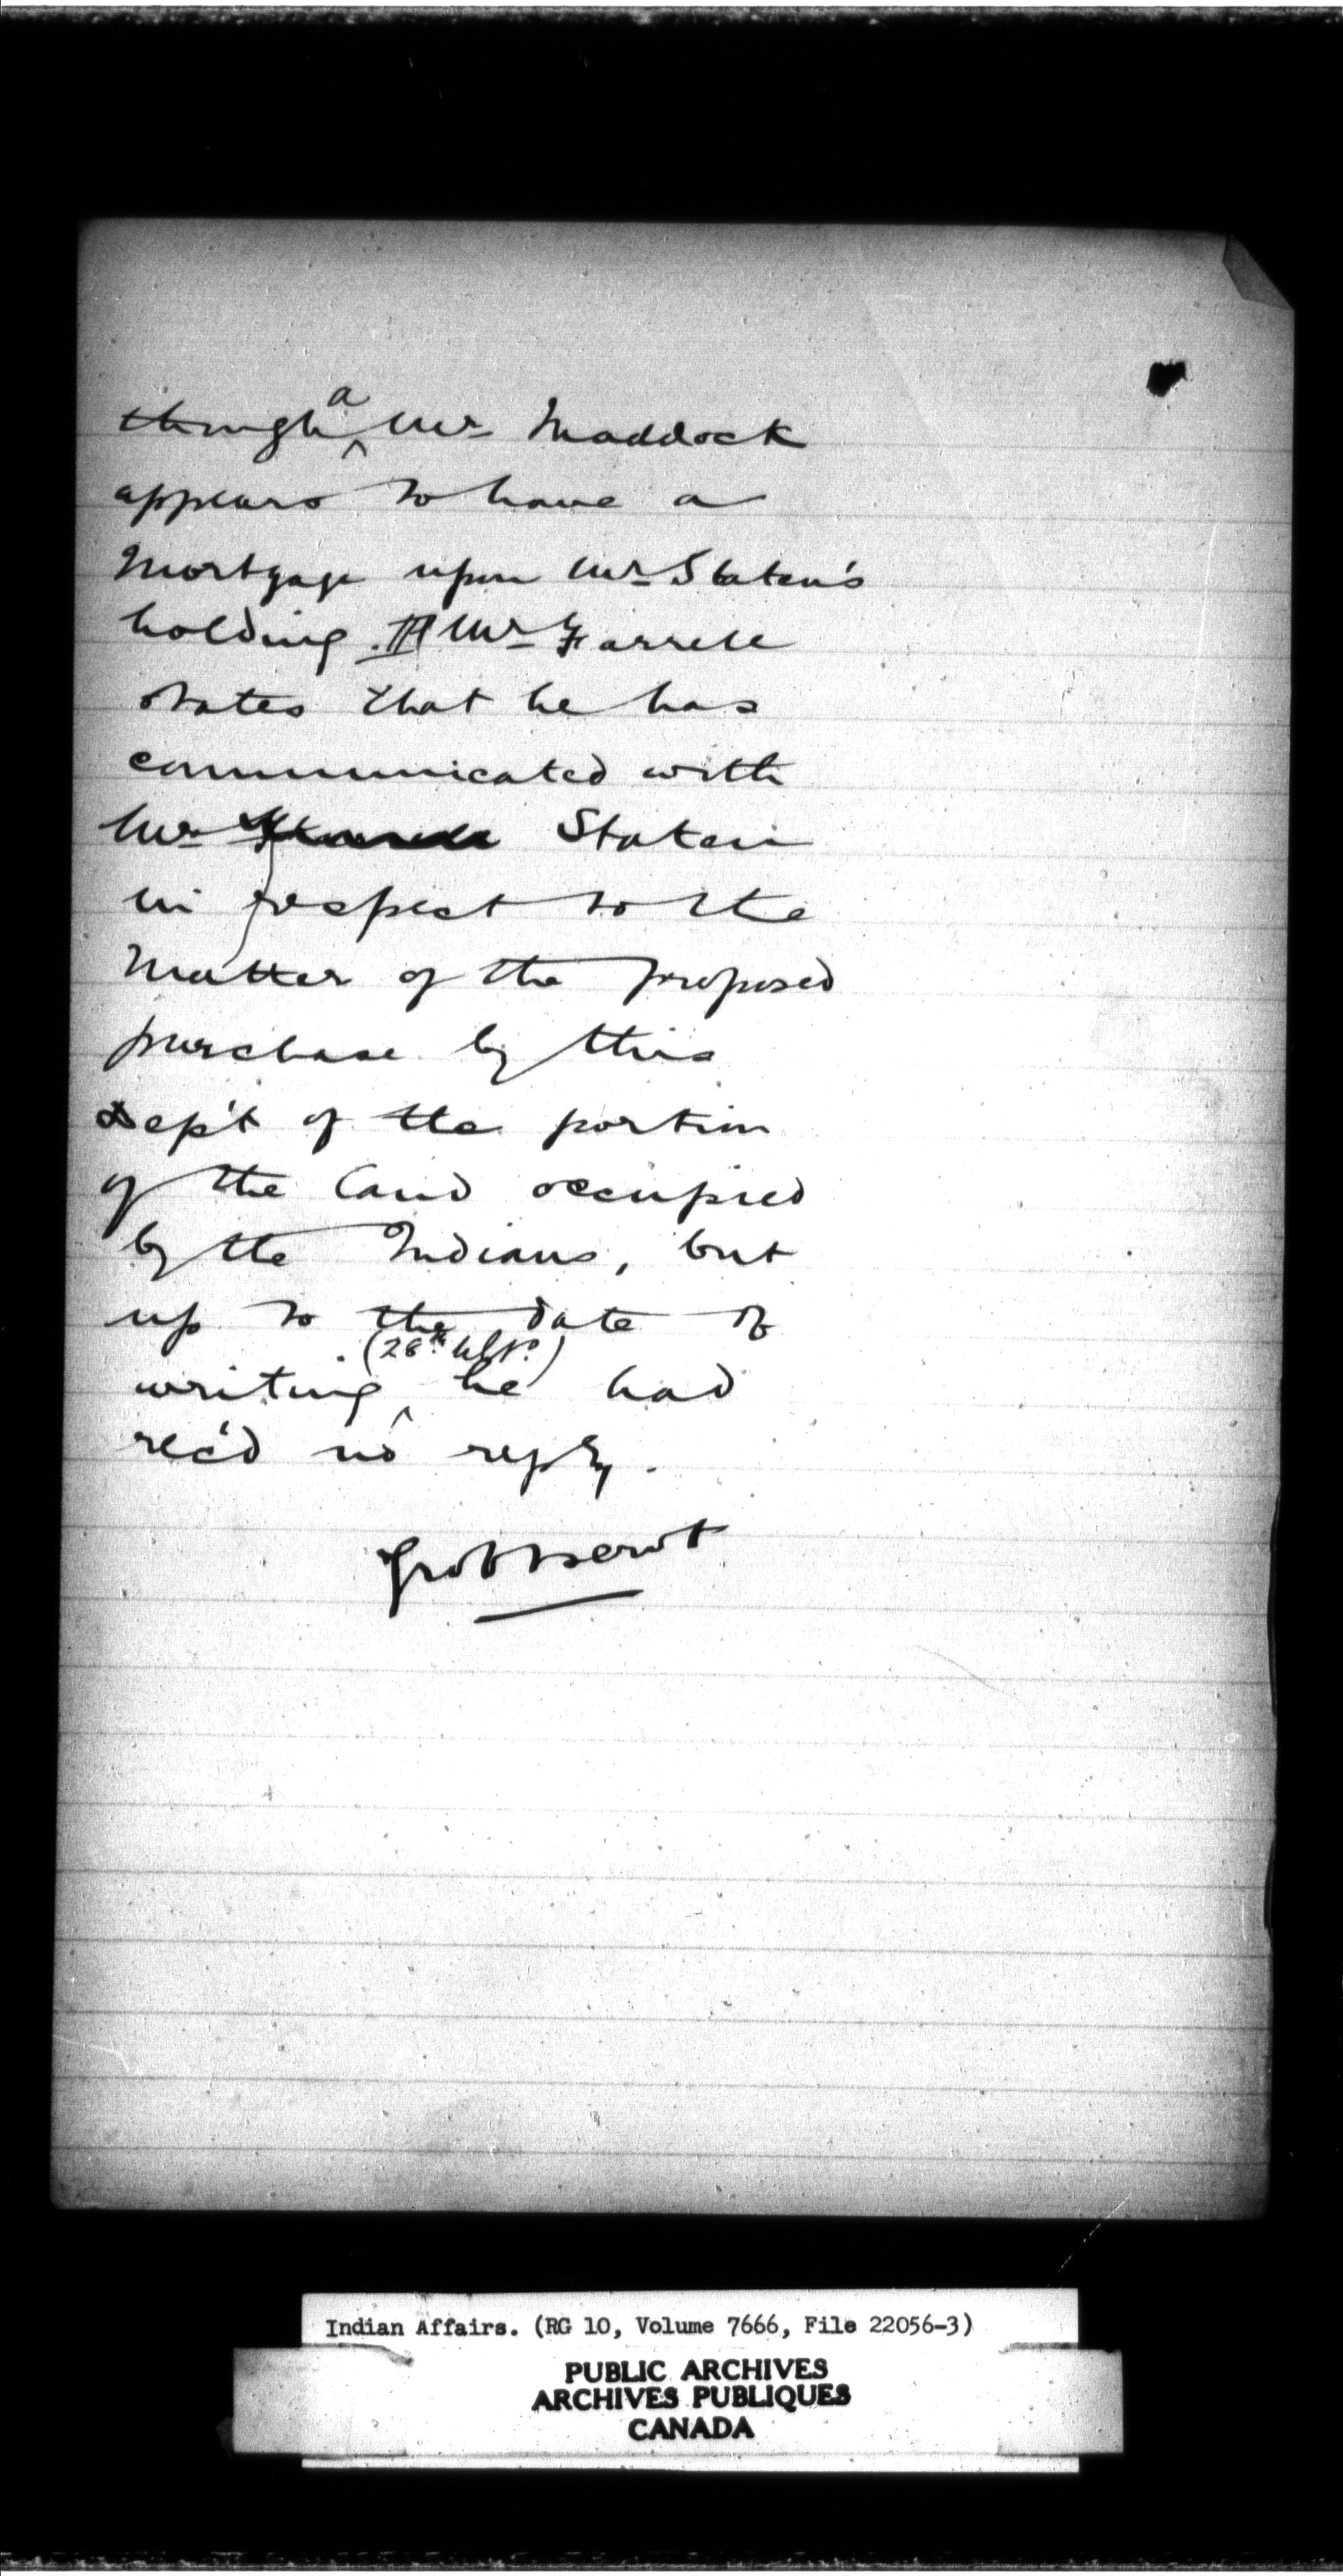 though a Mr Maddock
appears to have a
Mortgage upon Mr Staten's
holding. Mr Farrell
states that he has
communicated with
Mr Staten
in respect to the
Matter of the proposed
purchase by this
Dep't of the portion
of the land occupied
by the Indians, but
up to the date of
writing (28th ulto.) he had
rec'd no reply.
Indian Affairs. (RG 10, Volume 7666, File 22056-3)
PUBLIC ARCHIVES
ARCHIVES PUBLIQUES
CANADA